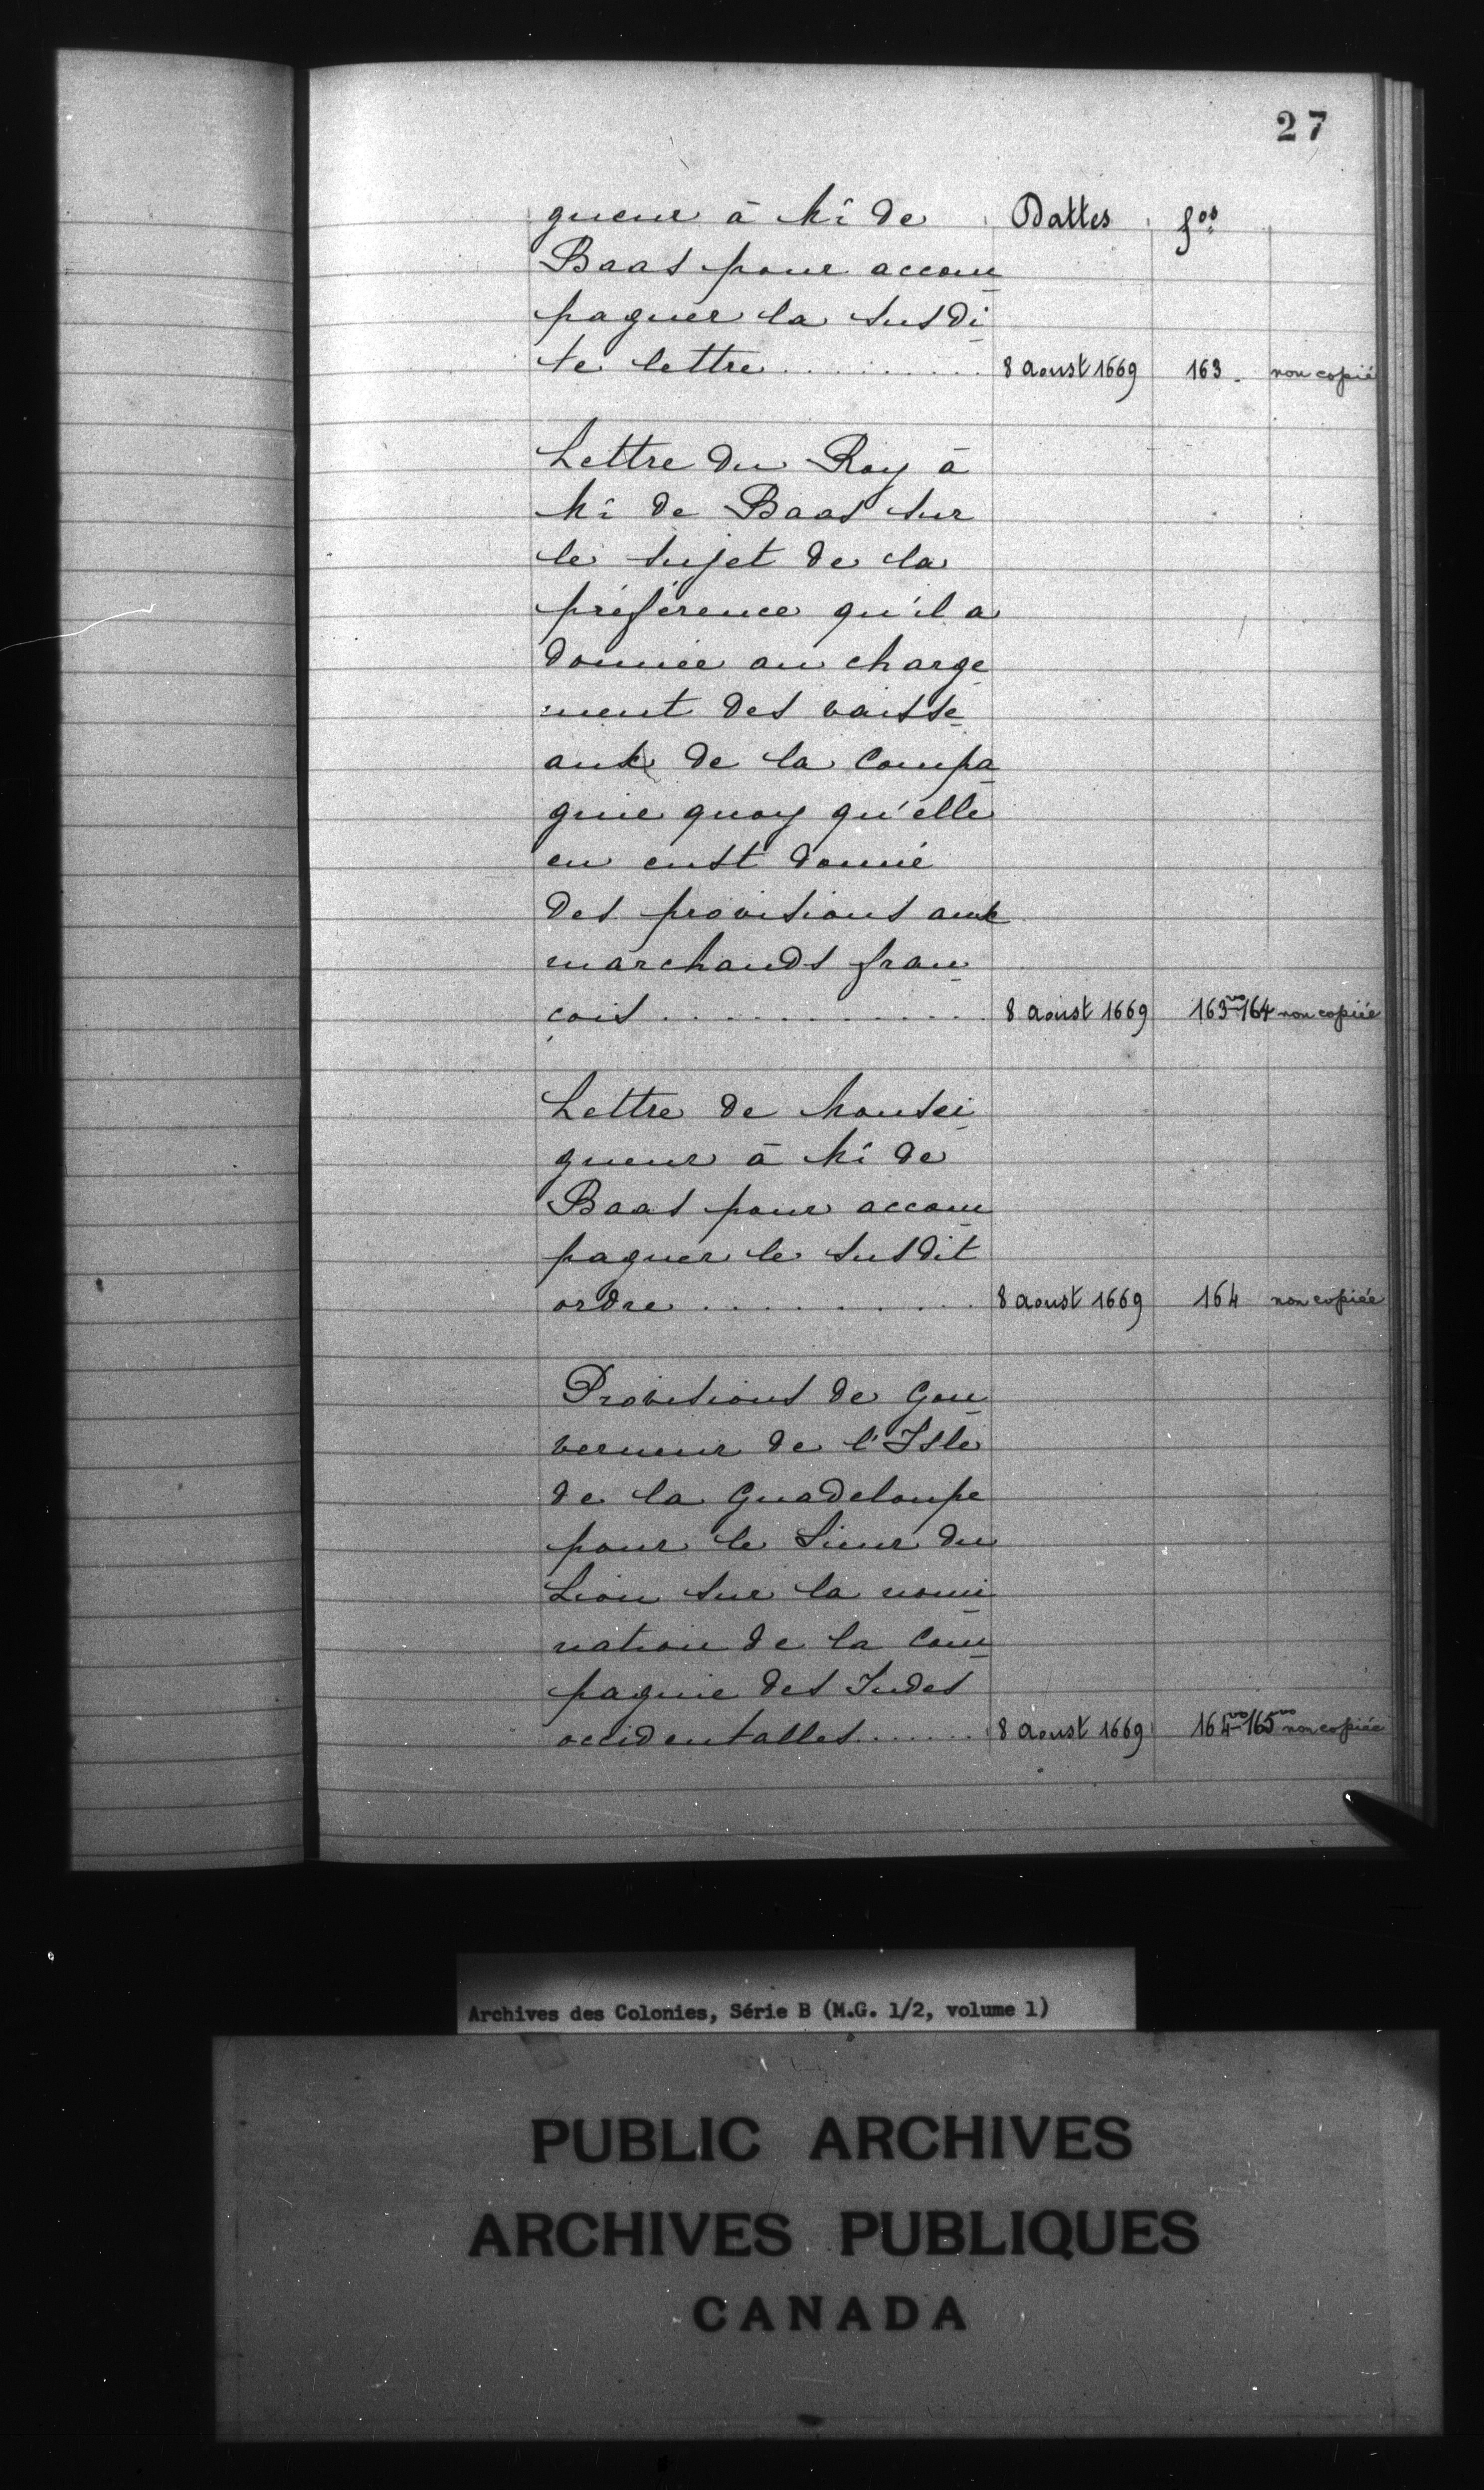 27
gneur à Mr de Dattes fos
Baas pour accom
pagner la susdi
te lettre .......... 8 aoust 1669 163. non copié
Lettre du Roy à
Mr de Baas sur
le sujet de la
préférence qu'il a
donnée au charge
ment des vaisse
aux de la Compa
gnie quoy qu'elle
en eust donné
des provisions aux
marchands fran
çois ............. 8 aoust 1669 163vo-164 non copiée
Lettre de Monsei
gneur à Mr de
Baas pour accom
pagner le susdit
ordre ........... 8 aoust 1669 164 non copiée
Provisions de Gou
verneur de l'Isle
de la Guadeloupe
pour le Sieur du
Lion sur la nomi
nation de la Com
pagnie des Indes
occidentalles....... 8 aoust 1669 164vo-165vo non copiée
Archives des Colonies, Série B (M.G. 1/2, volume 1)
PUBLIC ARCHIVES
ARCHIVES PUBLIQUES
CANADA